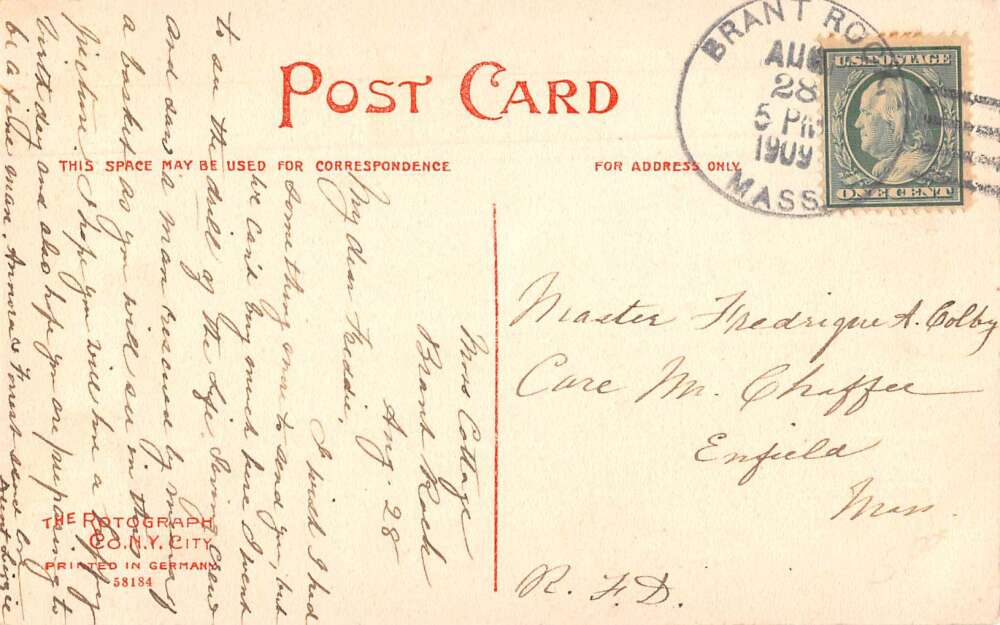 POST CARD
THIS SPACE MAY BE USED FOR CORRESPONDENCE
FOR ADDRESS ONLY.
BRANT ROCK
AUG
28
5 PM
1909
MASS.
U.S. POSTAGE
ONE CENT
Master Fredrique A. Colby
Care Mr. Chaffee
Enfield
Mass.
R. F. D.
Moss Cottage
Brant Rock
Aug. 28
My dear Freddie,
I wish I had
something more to send you, but
we can't buy much here. I went
to see the drill of the Life Saving crew
and saw a man rescued by means of
a basket as you will see in this
picture. I hope you will have a happy
birthday and also hope you are preparing to
be a fine man. Annora & Forest send love
Aunt Lizzie
THE ROTOGRAPH
CO. N.Y. CITY
PRINTED IN GERMANY
58184